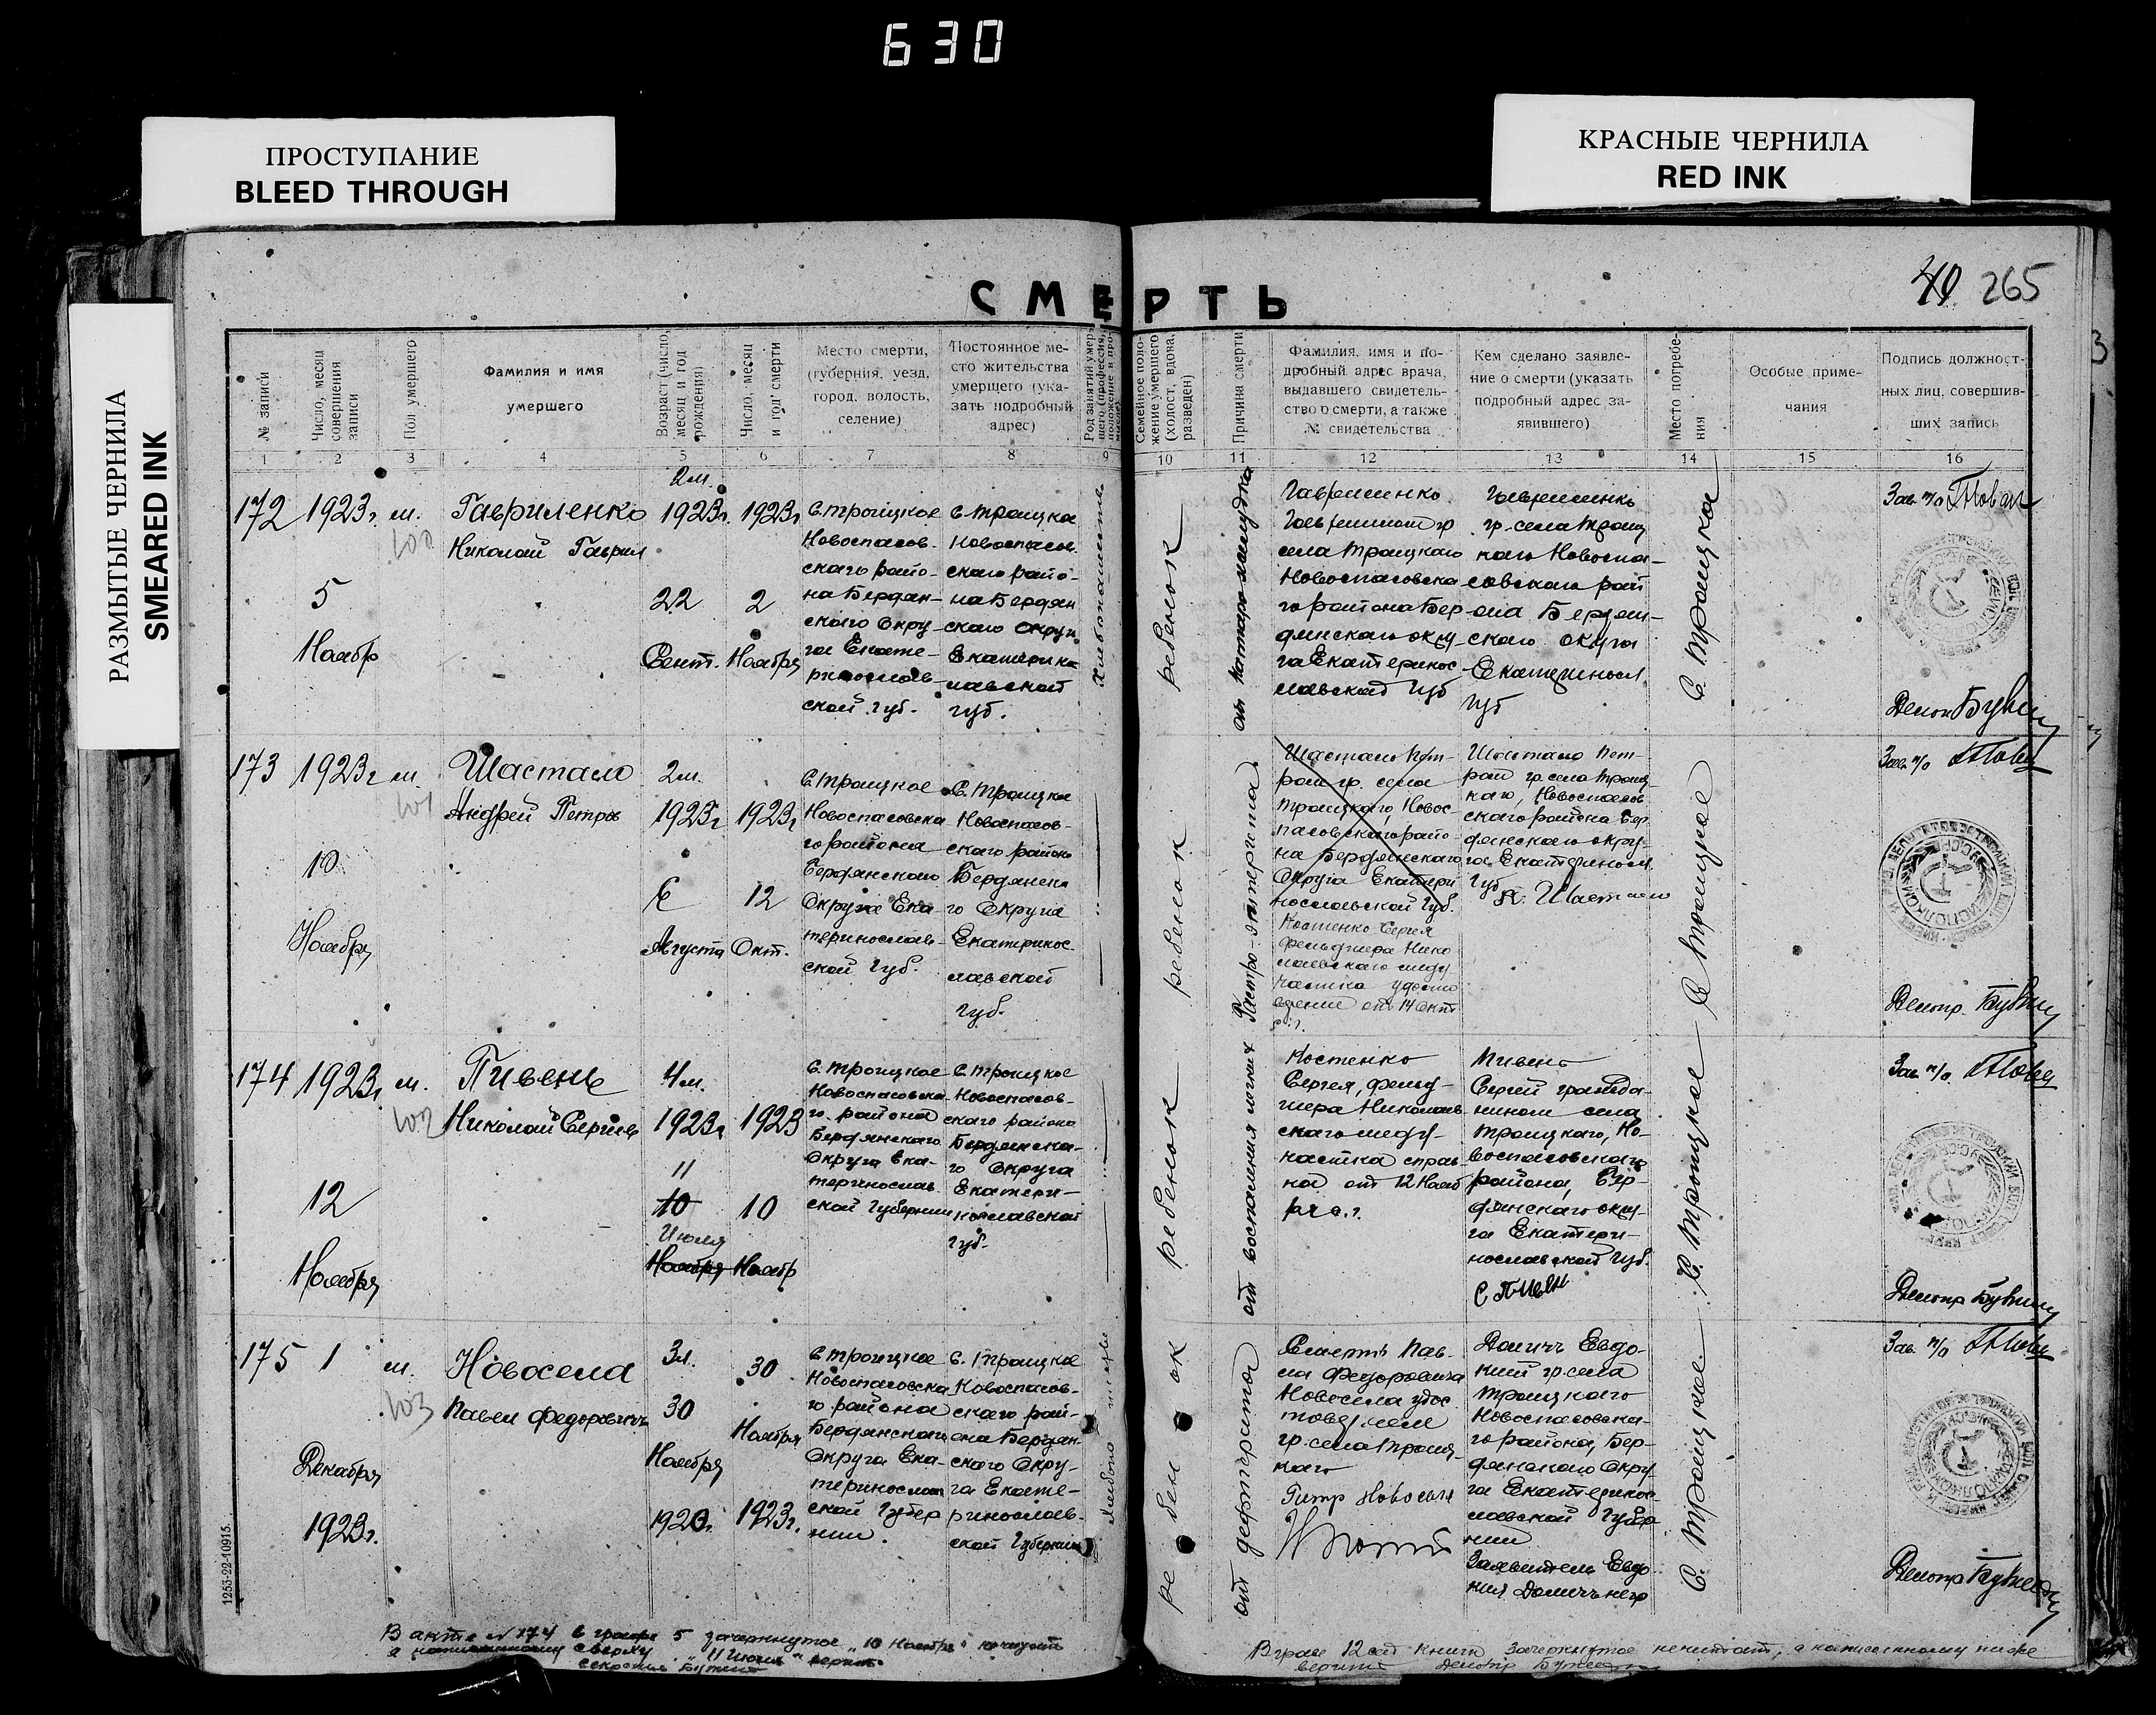 630
ПРОСТУПАНИЕ
BLEED THROUGH
КРАСНЫЕ ЧЕРНИЛА
RED INK
РАЗМЫТЫЕ ЧЕРНИЛА
SMEARED INK
СМЕРТЬ
40 265
№ записи
Число, месяц
совершения
записи
Пол умершего
Фамилия и имя
умершего
Возраст (число,
месяц и год
рождения)
Число, месяц
и год смерти
Место смерти,
(губерния, уезд,
город, волость,
селение)
Постоянное ме-
сто жительства
умершего (ука-
зать подробный
адрес)
Род занятий умер-
шего (профессия,
положение в про-
Семейное поло-
жение умершего
(холост, вдова,
разведен)
Причина смерти
Фамилия, имя и по-
дробный адрес врача,
выдавшего свидетель-
ство о смерти, а также
№ свидетельства
Кем сделано заявле-
ние о смерти (указать
подробный адрес за-
явившего)
Место погребе-
ния
Особые приме-
чания
Подпись должност-
ных лиц, совершив-
ших запись
1 2 3 4 5 6 7 8 9 10 11 12 13 14 15 16
172
1923г.
5
Ноябр
м.
100
Гавриленко
Николай Гаврил
2м.
1923г.
22
Сент.
1923г
2
Ноября
С. Троицкое
Новоспасов-
ского райо-
на Бердян-
ского Окру-
га Екате-
ринослав-
ской Губ.
С. Троицкое
Новоспасов-
ского райо-
на Бердян
ского Округ
Екатерино
славской
Губ.
Хлебопашество
ребенок
Гавриленко
гр
села Троицкаго
Новоспасовска
го района Бер
дянского окру
га Екатеринос
лавской Губ
Гавриленко
гр. села Троиц
каго Новоспа-
совского рай
она Бердян-
ского округа
Екатериносл
Губ
С. Троицкое
Зав. п/о
173
1923г
10
Ноября
м
101
Шастало
Андрей Петров
2м.
1923г
6
Августа
1923г
12
Окт.
С. Троицкое
Новоспасовска
го района
Бердянского
Округа Ека-
теринослав-
ской Губ.
С. Троицкое
Новоспасов-
ского района
Бердянско
го Округа
Екатеринос-
лавской
Губ.
ребенок
Гастро-энтерита
Шастало Пет-
ром гр. села
Троицкаго, Новос-
пасовского райо-
на Бердянского
Округа Екатери
нославской Губ.
Костенко Сергея
фельдшера Нико
лаевского меду
частка
от 14 Окт
Шастало Пет-
ром гр. села Троиц-
каго, Новоспасов
ского района Бер
дянского окру-
га Екатериносл
Губ.
П. Шастало
С Троицкое
Зав. п/о
174
1923г
12
Ноября
м.
102
Пивень
Николай Сергеев
4м.
1923г
11
10
Июля
Ноября
1923
10
Ноябр
С. Троицкое
Новоспасовска
го района
Бердянского
Округа Ека-
теринослав
ской Губернии
С Троицкое
Новоспасов-
ского района
Бердянско-
го Округа
Екатери-
нославской
Губ.
ребенок
от воспаления легких
Костенко
Сергея, фельд-
шера Николаев
ского меду-
частка справ-
ка от 12 Нояб
Пивень
Сергей гражда-
нином села
Троицкаго, Но-
воспасовского
района, Бер-
дянского окру-
га Екатери-
нославской Губ.
С Пивен
С. Троицкое
Зав. п/о
175
1
Декабря
1923г.
м.
103
Новосела
Павел Федорович
3л.
30
Ноября
1920г.
30
Ноября
1923г.
С Троицкое
Новоспасовска
го района
Бердянского
Округа Ека-
теринослав
ской Губер
нии
С. Троицкое
Новоспасов-
ского рай-
она Бердян-
ского Окру-
га Екате-
ринослав-
ской Губернии
ребенок
от дефтерита
Смерть Пав-
ла Федоровича
Новосела удос
гр. села Троиц-
каго
Новосел
Евдо-
кии гр. села
Троицкаго
Новоспасовска-
го района, Бер-
дянского Окру
га Екатеринос-
лавской Губер
нии
Заявитель Евдо
кия
С. Троицкое
Зав. п/о
1253-22-10915.
В акте №174 в графе 5 зачеркнутое "10 Ноября" не читать
а сверху "11 Июля" верить.
В графе 12 Книги Зачеркнутое не читать, а написанному ниже
верить